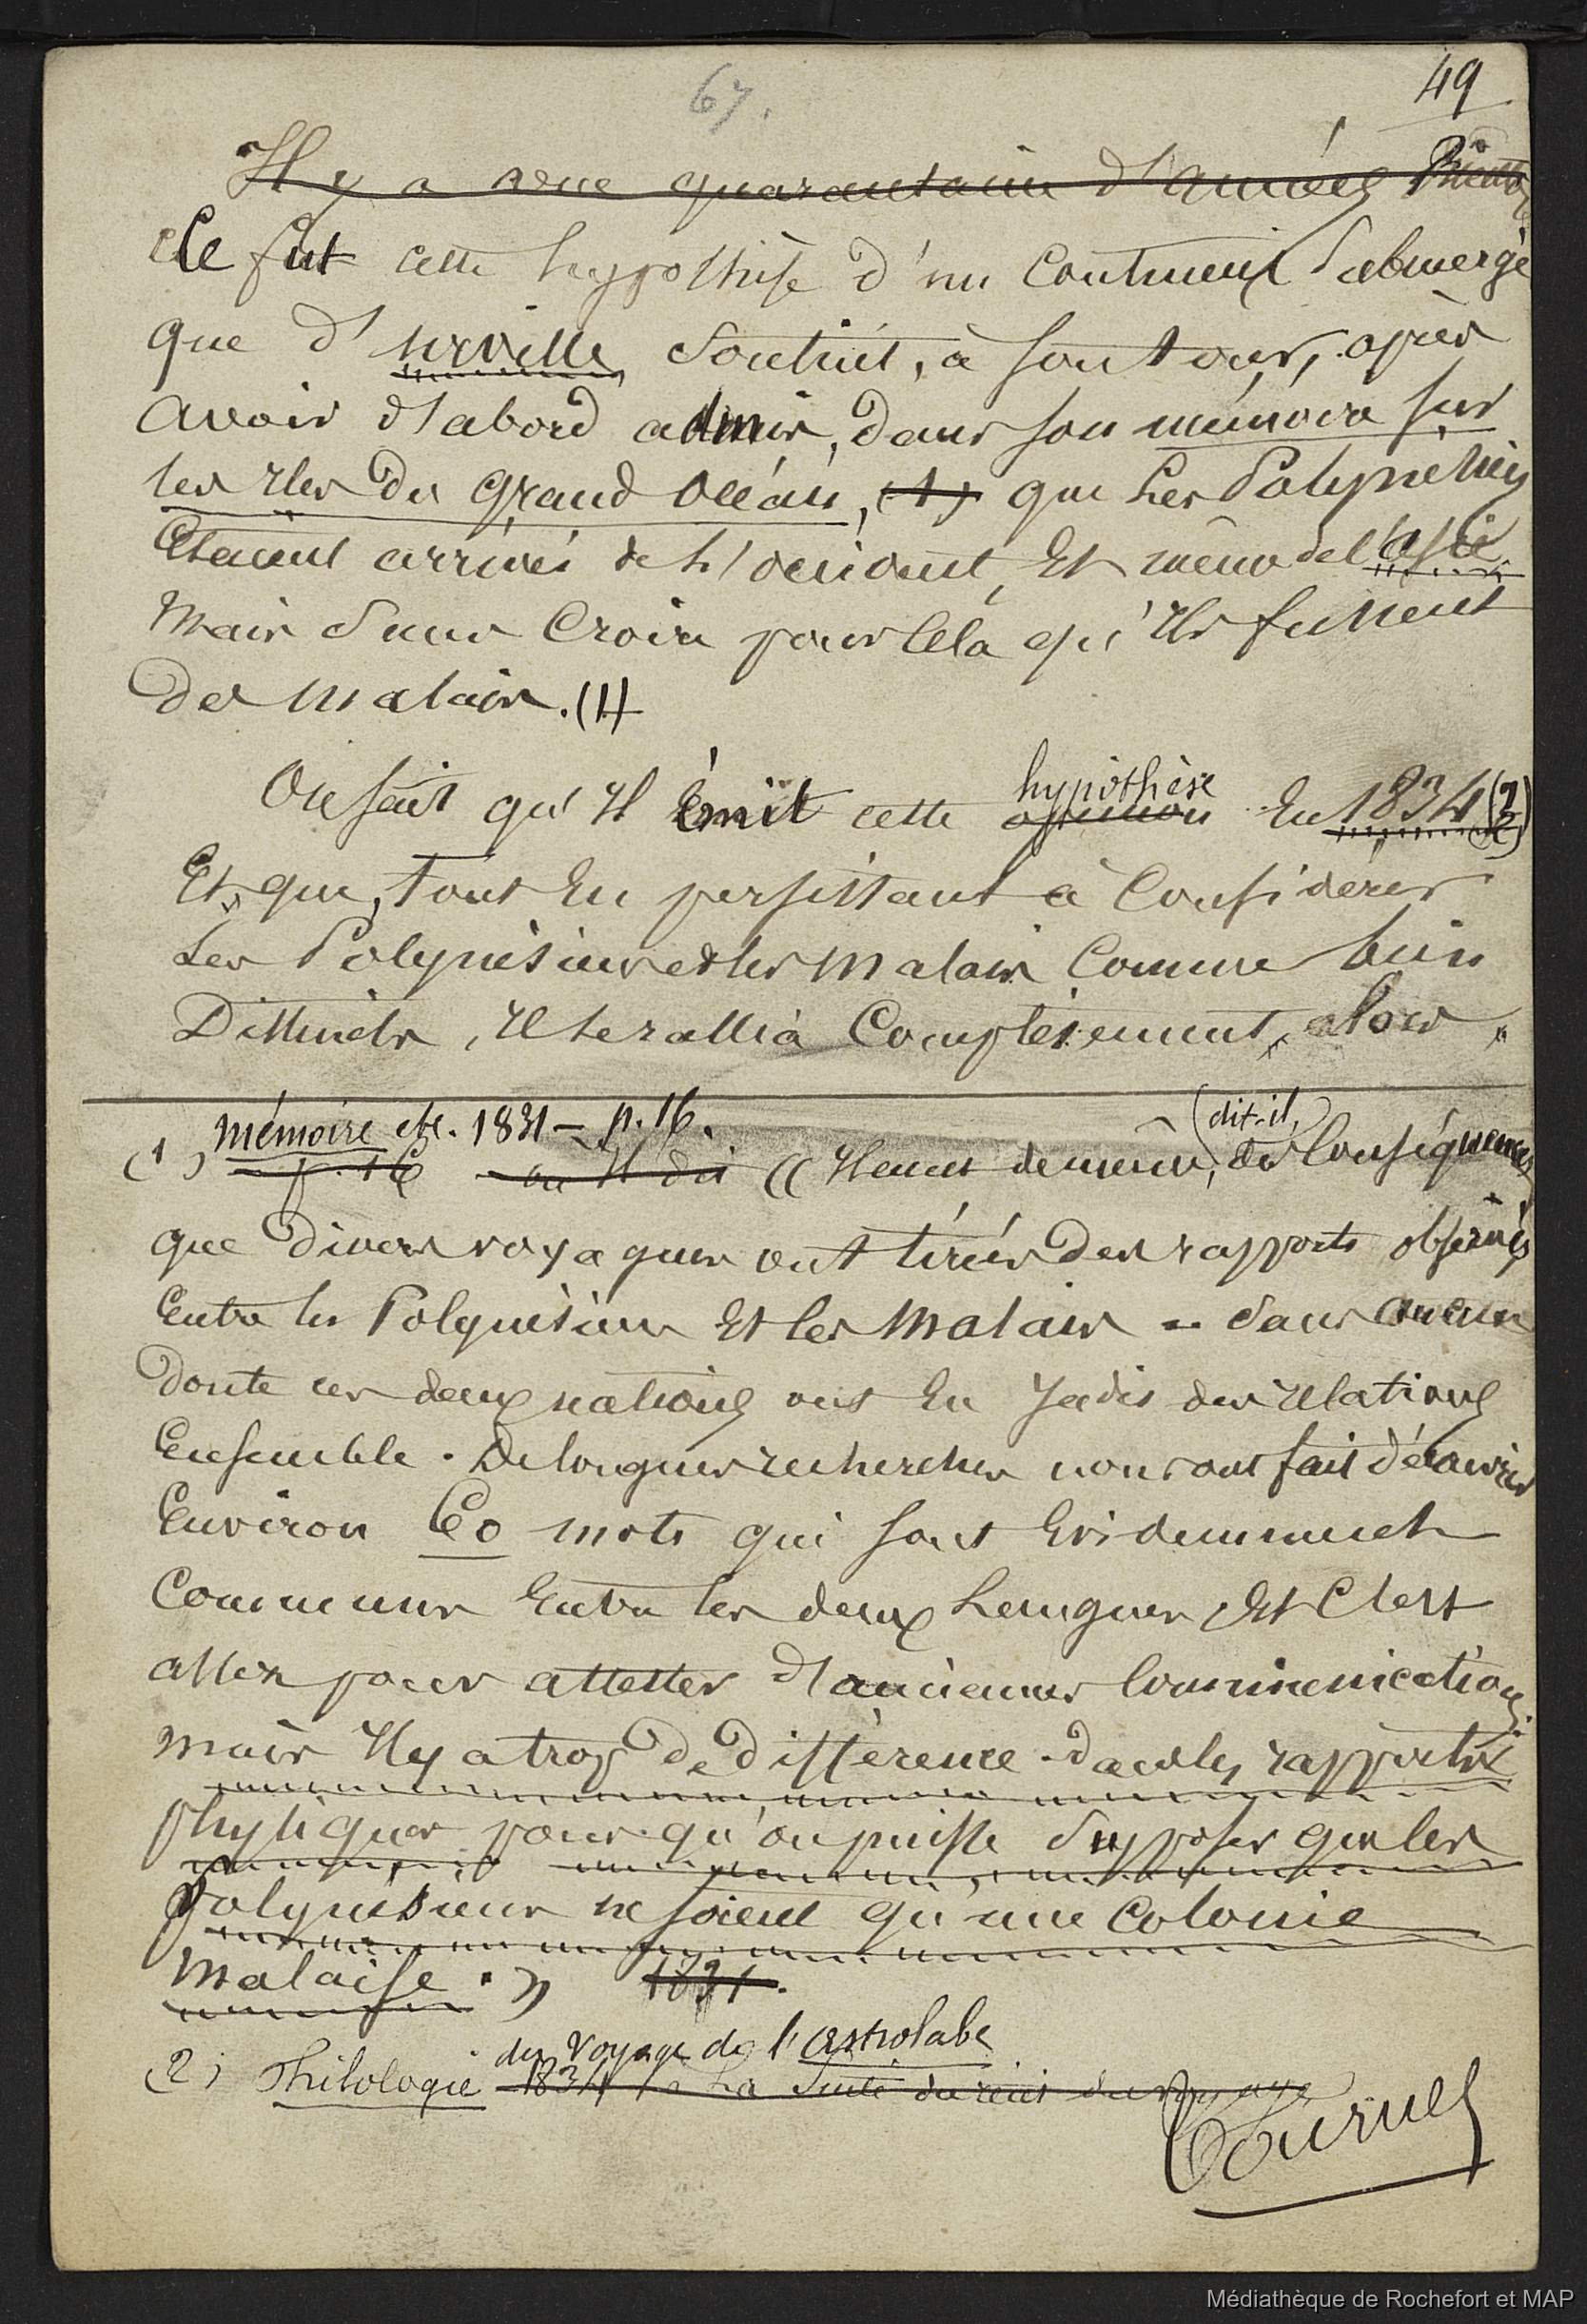 67.
49
Il y a une quarantaine d'années
Ce fut cette hypothèse d'un Continent submergé
que d'urville soutint, à son tour, après
avoir d'abord admis, dans son mémoire sur
les Iles du grand océan, (1) que les Polynésiens
Etaient arrivés de l'occident, Et même de l'asie
Mais sans Croire pour Cela qu'Ils fussent
des malais. (1)
On sait qu'Il émit cette opinion hypothèse En 1834 (2)
Et que, tout En persistant à Considérer
Les Polynésiens et les malais Comme bien
Distincts, Il se rallia Complètement, alors,
(1) mémoire etc. 1831 – p. 16.
p. 16 où Il dit (( Il en est de même, (dit-il,) des Conséquences
que divers voyageurs ont tirées des rapports observés
Entre les Polynésiens Et les malais – sans aucun
doute ces deux nations ont Eu Jadis des relations
Ensemble. De longues recherches nous ont fait découvrir
Environ 60 mots qui sont Evidemment
Communs Entre les deux Langues Et C'est
assez pour attester d'anciennes Communications;
mais Il y a trop de différence dans les rapports
physiques pour qu'on puisse supposer que les
polynésiens ne soient qu'une Colonie
malaise. )) 1831.
(2) Philologie du Voyage de l'astrolabe
1834 La Suite du récit du voyage
Tournez
Médiathèque de Rochefort et MAP